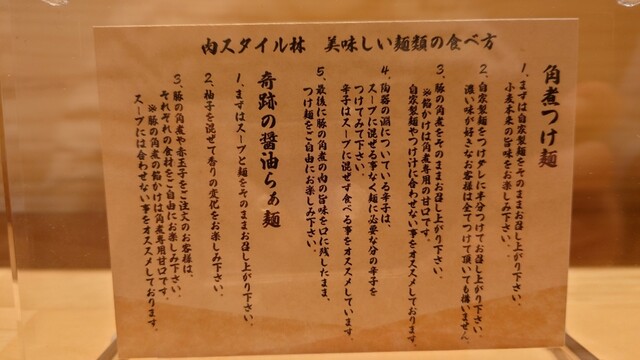 肉スタイル林　美味しい麺類の食べ方
角煮つけ麺
1、まずは自家製麺をそのままお召し上がり下さい。
小麦本来の旨味をお楽しみ下さい。
2、自家製麺をつけダレに半分つけてお召し上がり下さい。
濃い味が好きなお客様は全てつけて頂いても構いません。
3、豚の角煮をそのままお召し上がり下さい。
※餡かけは角煮専用の甘口です。
自家製麺やつけ汁に合わせない事をオススメしております。
4、陶器の淵についている辛子は、
スープに混ぜる事なく麺に必要な分の辛子を
つけてみて下さい。
辛子はスープに混ぜず食べる事をオススメしています。
5、最後に豚の角煮の肉の旨味を口に残したまま、
つけ麺をご自由にお楽しみ下さい。
奇跡の醤油らぁ麺
1、まずはスープと麺をそのままお召し上がり下さい。
2、柚子を混ぜて香りの変化をお楽しみ下さい。
3、豚の角煮や赤玉子をご注文のお客様は、
それぞれの食材をご自由にお楽しみ下さい。
※豚の角煮の餡かけは角煮専用甘口です。
スープには合わせない事をオススメしております。